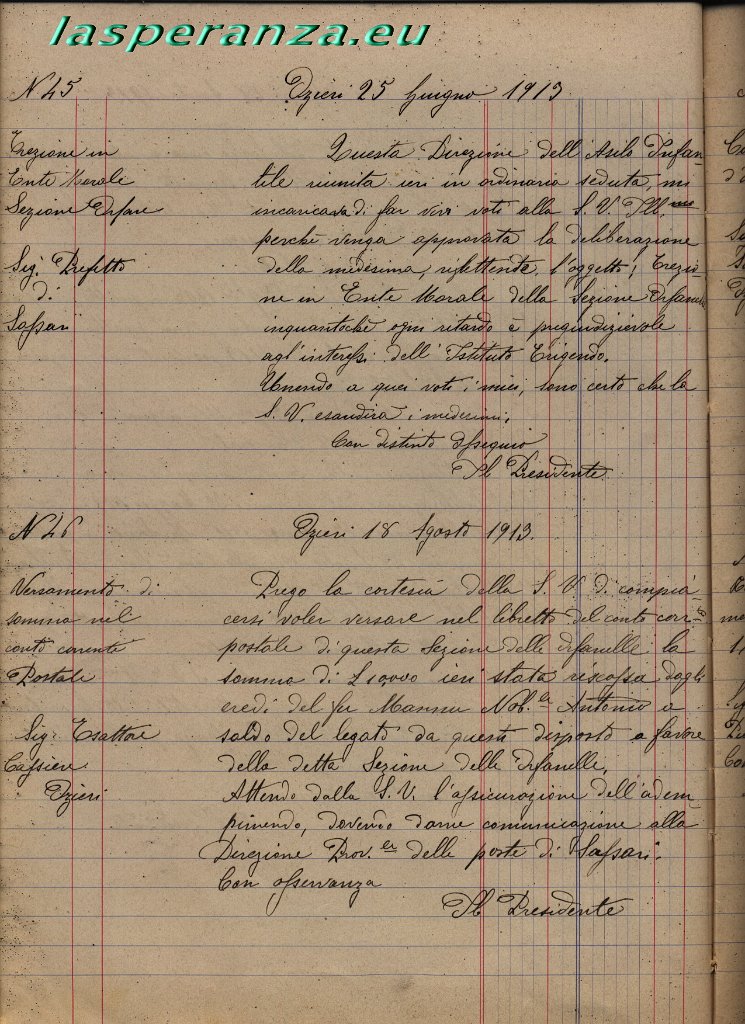 lasperanza.eu
N. 45
Ozieri 25 Giugno 1913
Erezione in
Ente Morale
Sezione Orfane
Sig. Prefetto
di
Sassari
Questa Direzione dell'Asilo Infan-
tile riunita ieri in ordinaria seduta, mi
incaricava di far vivi voti alla S. V. Ill.ma
perchè venga approvata la deliberazione
della medesima, riflettente l'oggetto; Erezio-
ne in Ente Morale della Sezione Orfanelle
inquantochè ogni ritardo è pregiudizievole
agl'interessi dell'Istituto Erigendo.
Unendo a quei voti i miei, sono certo che la
S. V. esaudirà i medesimi.
Con distinto Ossequio
Il Presidente
N. 46
Ozieri 18 Agosto 1913.
Versamento di
somma nel
conto corrente
Postale
Sig. Esattore
Cassiere
Ozieri
Prego la cortesia della S. V. di compia-
cersi voler versare nel libretto del conto corr.te
postale di questa Sezione delle Orfanelle la
somma di L ieri stata riscossa dagli
eredi del fu Mannu Nob.le Antonio a
saldo del legato da questi disposto a favore
della detta Sezione delle Orfanelle.
Attendo dalla S. V. l'assicurazione dell'adem-
pimendo, dovendo darne comunicazione alla
Direzione Prov.le delle poste di Sassari.
Con osservanza
Il Presidente